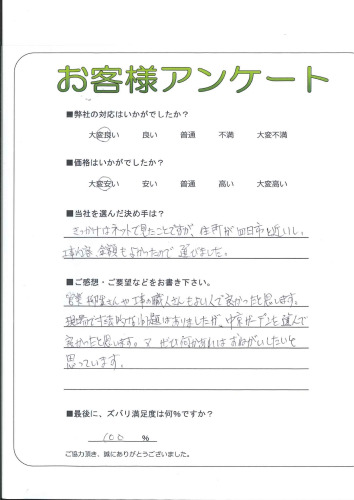 お客様アンケート
■弊社の対応はいかがでしたか？
大変良い 良い 普通 不満 大変不満
■価格はいかがでしたか？
大変安い 安い 普通 高い 大変高い
■当社を選んだ決め手は？
きっかけはネットで見たことですが、住所が四日市と近いし、
工事内容、金額もよかったので選びました。
■ご感想・ご要望などをお書き下さい。
営業 さんや工事の職人さんもよい人で良かったと思います。
現場で な問題はありましたが、中京ガーデンを選んで
良かったと思います。 ぜひ何かあればおねがいしたいと
思っています。
■最後に、ズバリ満足度は何％ですか？
100 ％
ご協力頂き、誠にありがとうございました。